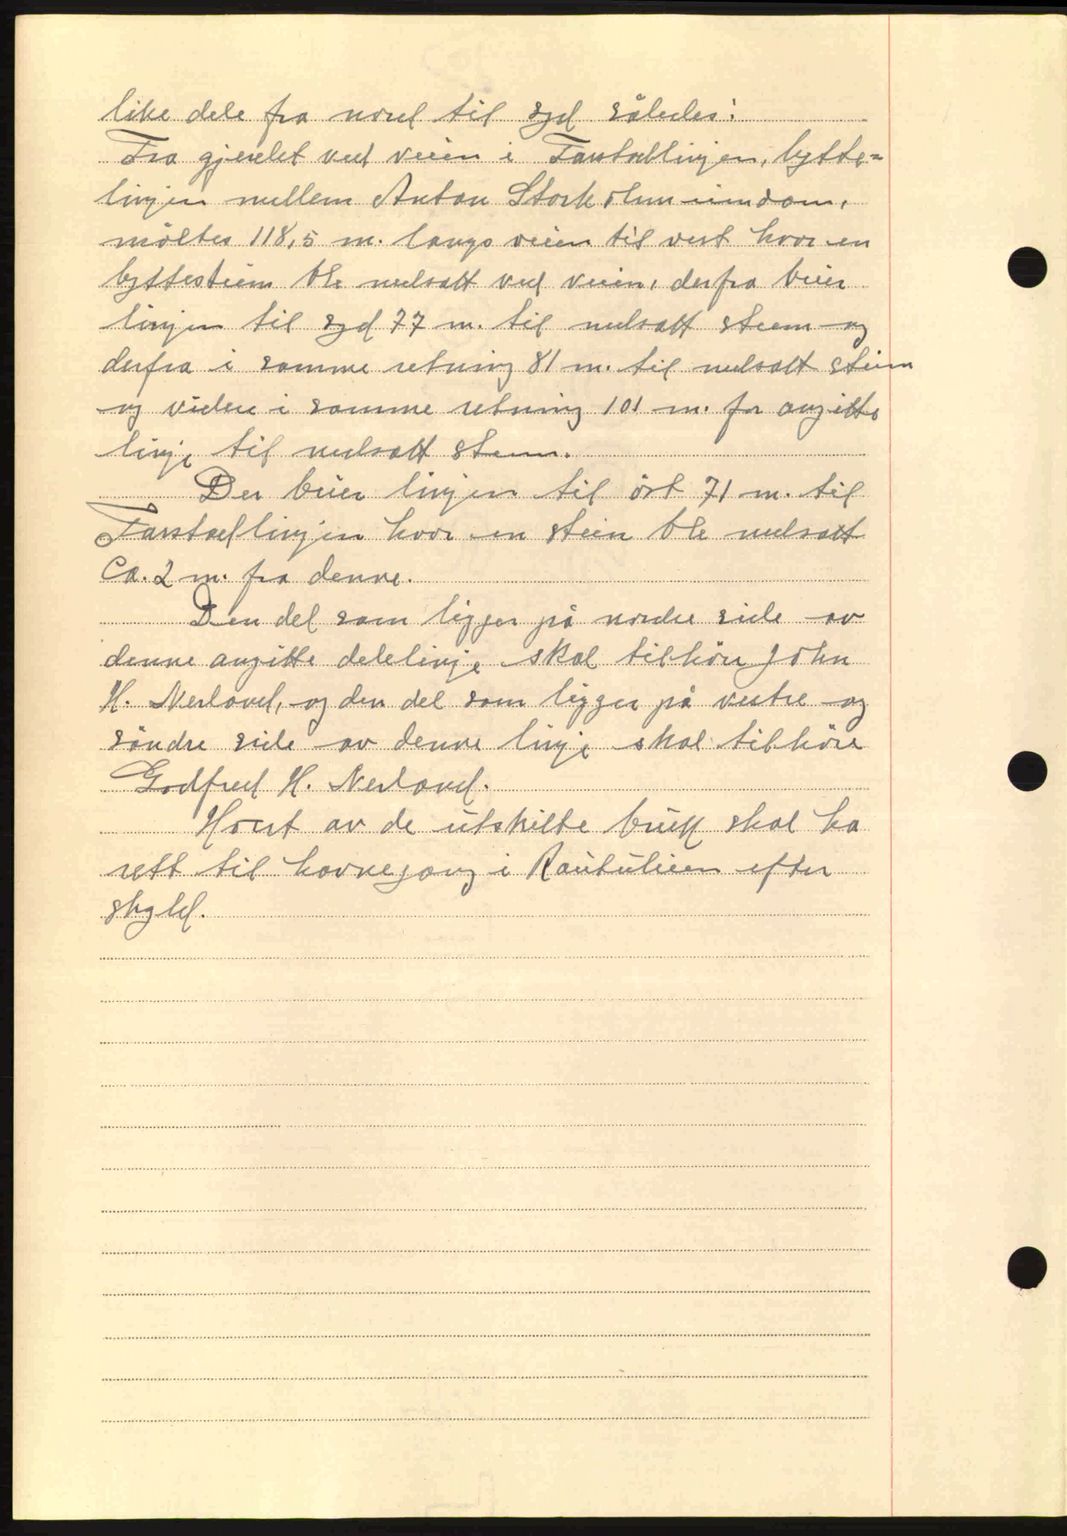 like dele fra nord til syd således:
Fra gjerdet ved veien i Farstadlinjen, bytte=
linjen mellem Anton Storholms eiendom,
måltes 118,5 m. langs veien til vest hvor en
byttestein ble nedsatt ved veien, derfra bøier
linjen til syd 77 m. til nedsatt steen og
derfra i samme retning 81 m. til nedsatt stein
og videre i samme retning 101 m. for angitte
linje til nedsatt steen.
Der bøier linjen til öst 71 m. til
Farstadlinjen hvor en stein ble nedsatt
Ca. 2 m. fra denne.
Den del som ligger på nordre side av
denne angitte delelinje skal tilhöre John
H. Nerland, og den del som ligger på vestre og
söndre side av denne linje skal tilhöre
Godfred H. Nerland.
Hvert av de utskilte bruk skal ha
rett til havnegang i efter
skyld.